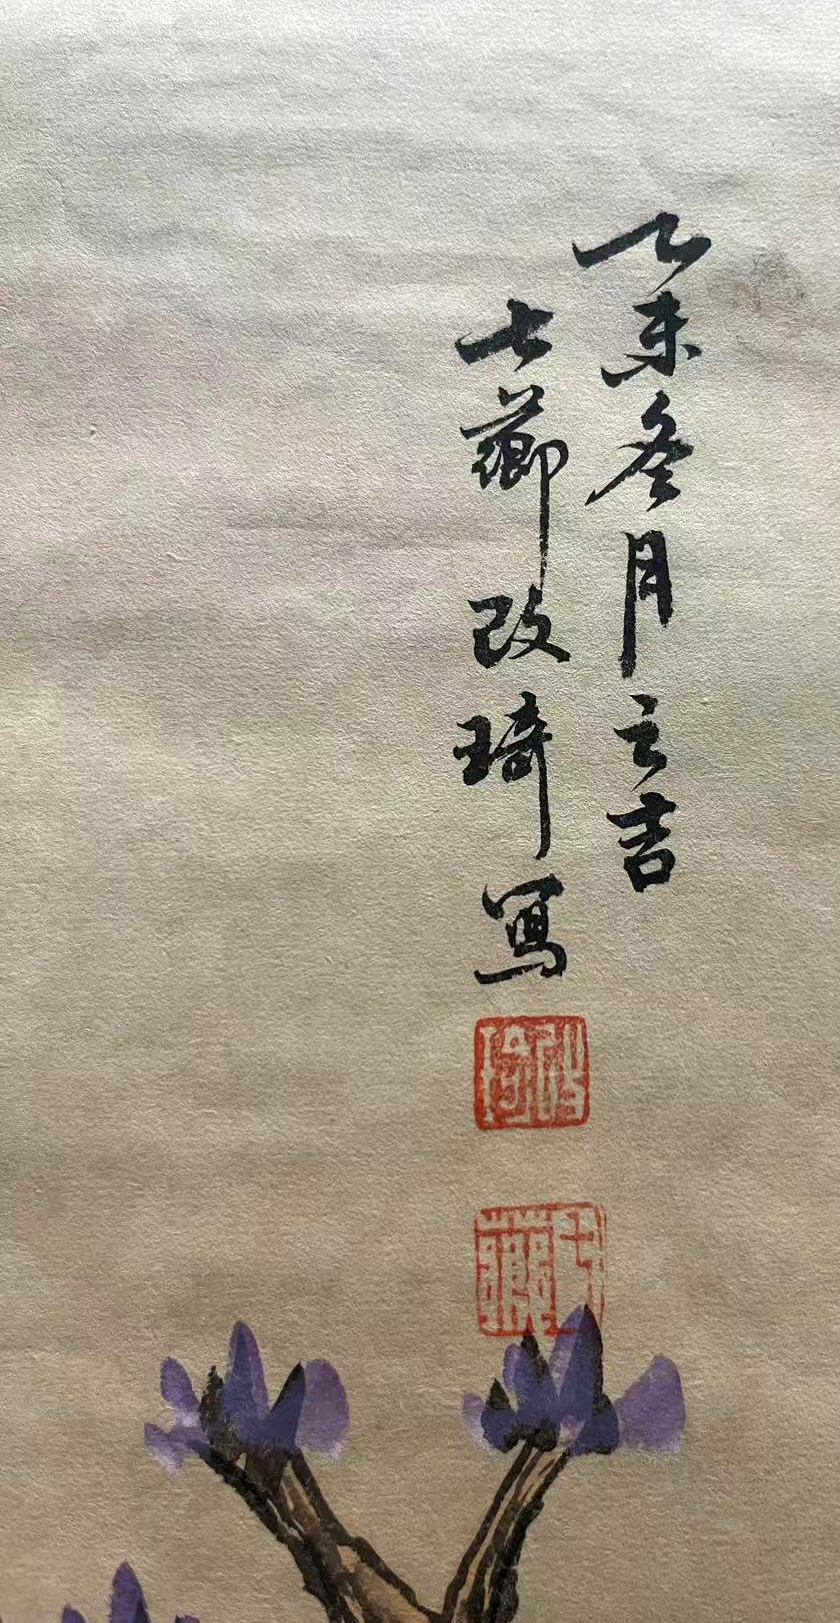 乙未冬月之吉
七薌改琦寫
改琦
七薌